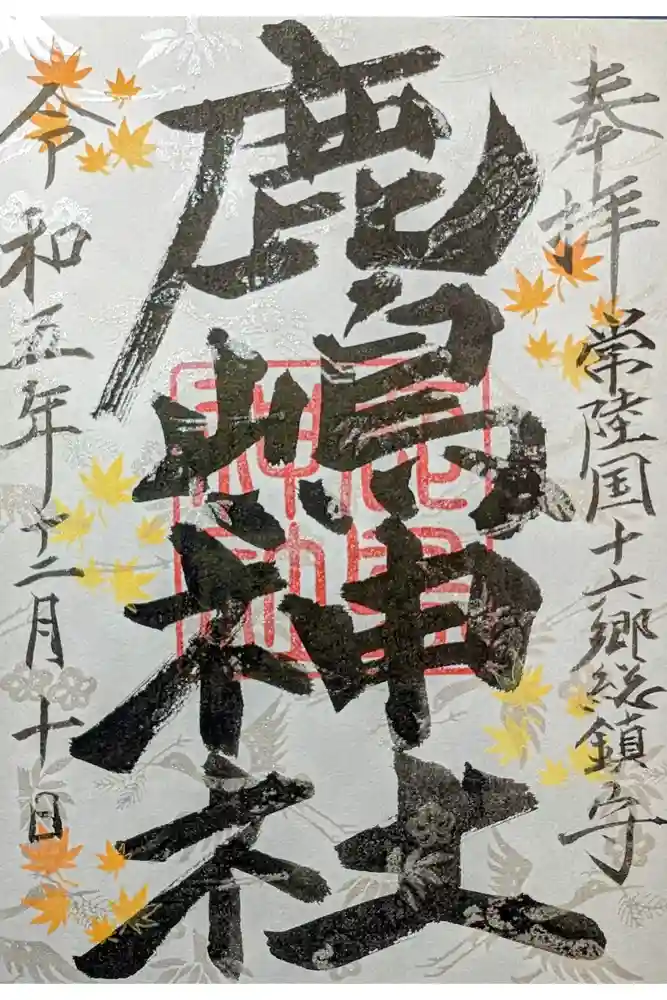 奉拝
常陸国十六郷総鎮守
鹿嶋神社
令和五年十二月十日